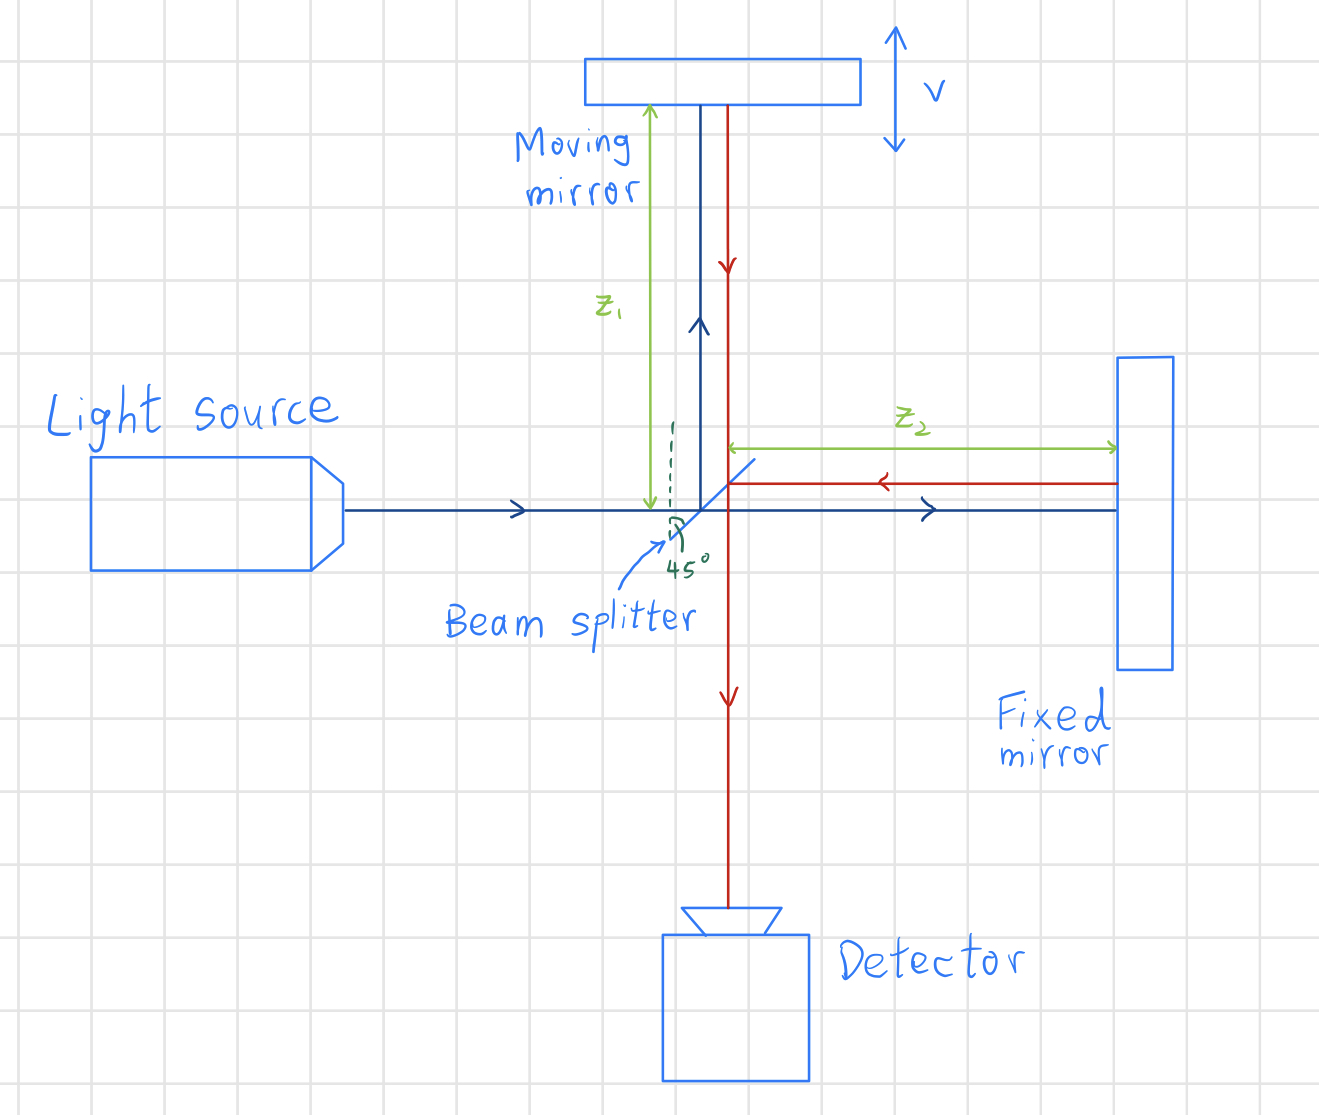 v
Moving
mirror
z₁
Light source
z₂
45°
Beam splitter
Fixed
mirror
Detector